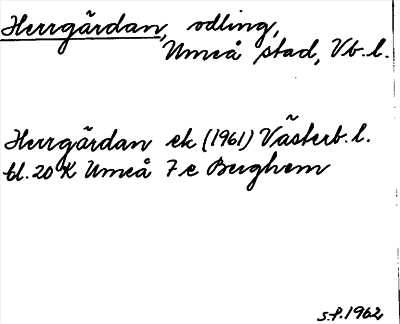 Herrgårdan, odling,
Umeå stad, Vb. l.
Herrgårdan ek (1961) Västerb. l.
bl. 20 K Umeå 7 e Berghem
s.f. 1962